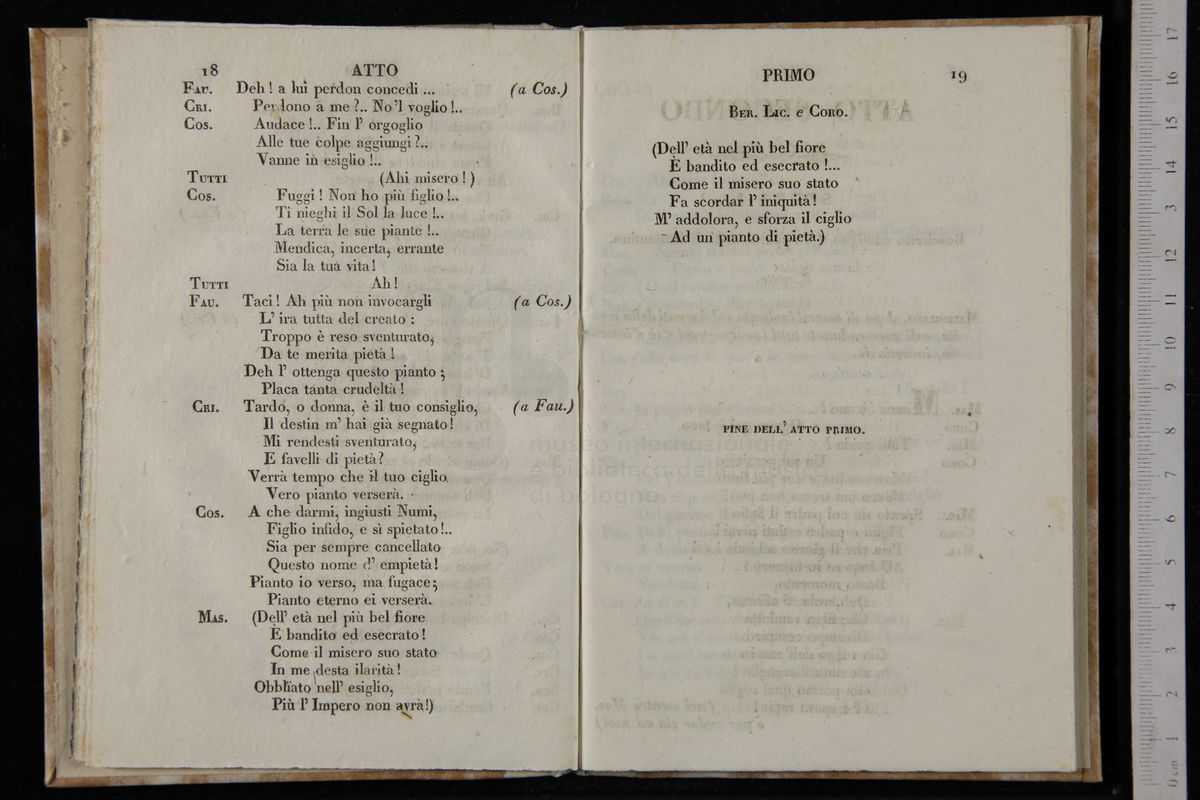 18 ATTO
FAU. Deh! a lui perdon concedi ... (a Cos.)
CRI. Perdono a me ?.. No'l voglio !..
COS. Audace !.. Fin l' orgoglio
Alle tue colpe aggiungi ?..
Vanne in esiglio !..
TUTTI (Ahi misero ! )
COS. Fuggi ! Non ho più figlio !..
Ti nieghi il Sol la luce !..
La terra le sue piante !..
Mendica, incerta, errante
Sia la tua vita!
TUTTI Ah!
FAU. Taci! Ah più non invocargli (a Cos.)
L' ira tutta del creato :
Troppo è reso sventurato,
Da te merita pietà !
Deh l' ottenga questo pianto ;
Placa tanta crudeltà !
CRI. Tardo, o donna, è il tuo consiglio, (a Fau.)
Il destin m' hai già segnato!
Mi rendesti sventurato,
E favelli di pietà?
Verrà tempo che il tuo ciglio
Vero pianto verserà.
COS. A che darmi, ingiusti Numi,
Figlio infido, e sì spietato!..
Sia per sempre cancellato
Questo nome d' empietà!
Pianto io verso, ma fugace;
Pianto eterno ei verserà.
MAS. (Dell' età nel più bel fiore
È bandito ed esecrato!
Come il misero suo stato
In me desta ilarità!
Obbliato nell' esiglio,
Più l' Impero non avrà!)
PRIMO 19
BER. LIC. e CORO.
(Dell' età nel più bel fiore
È bandito ed esecrato !...
Come il misero suo stato
Fa scordar l' iniquità!
M' addolora, e sforza il ciglio
Ad un pianto di pietà.)
FINE DELL' ATTO PRIMO.
museo internazionale
e biblioteca della musica
di bologna